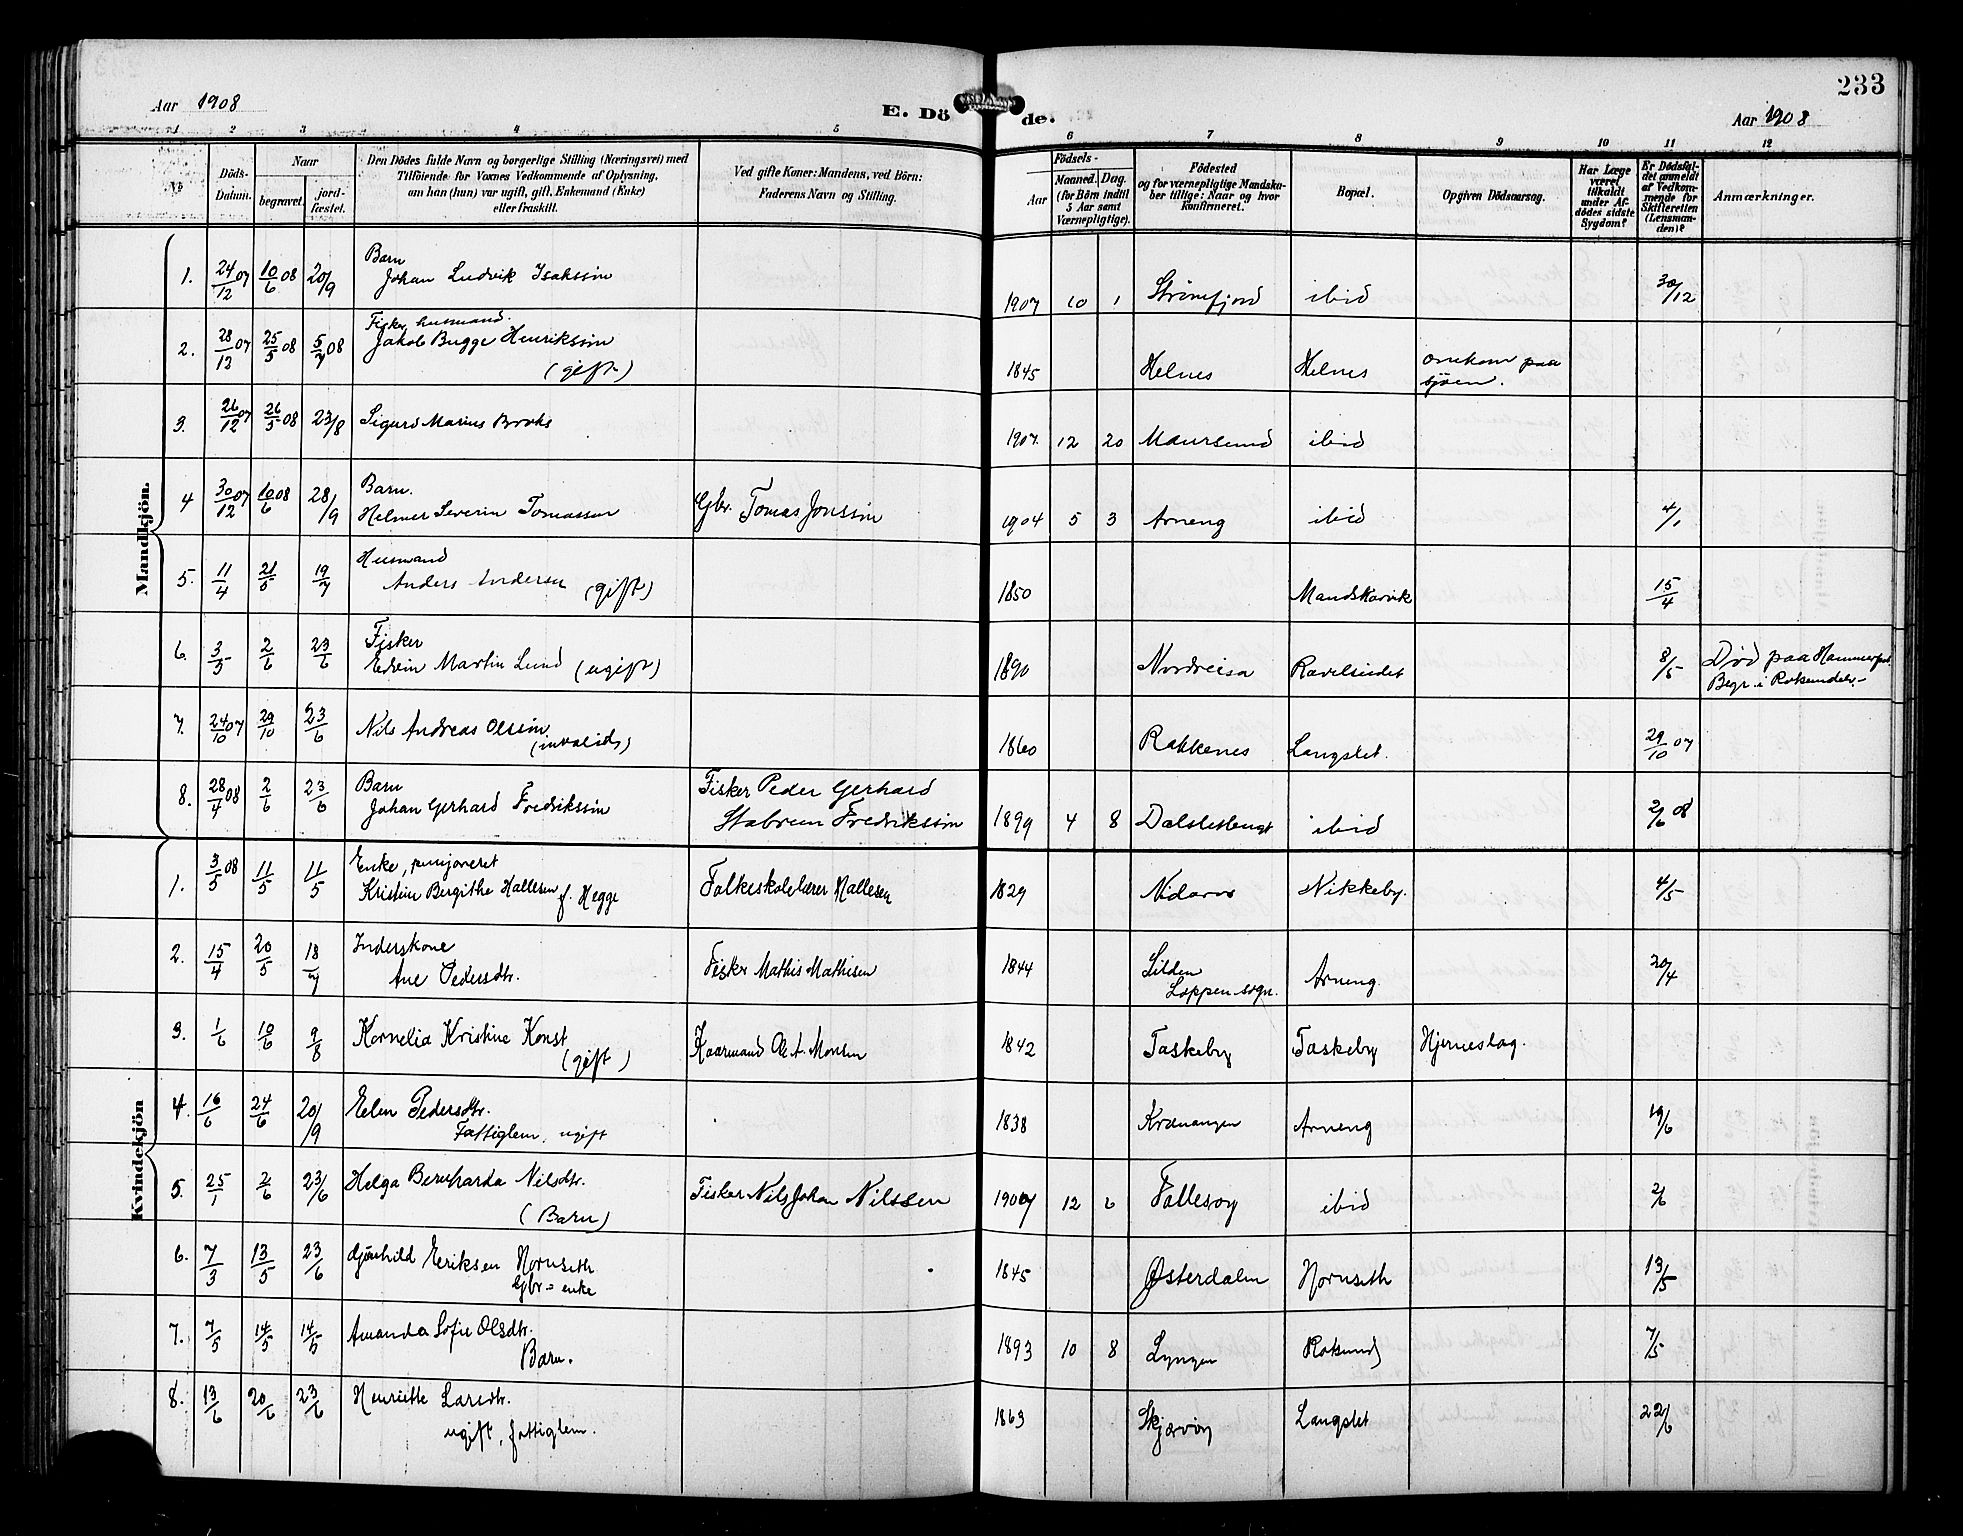 233
Aar 1908
E. Döde.
Aar 1908
1 2 3 4 5 6 7 8 9 10 11 12
No
Döds-Datum.
Naar
begravet.
jord-fæstet.
Den Dödes fulde Navn og borgerlige Stilling (Næringsvei) med
Tilföiende for Voxnes Vedkommende af Oplysning,
om han (hun) var ugift, gift, Enkemand (Enke)
eller fraskilt.
Ved gifte Koner: Mandens, ved Börn:
Faderens Navn og Stilling.
Födsels-
Aar
Maaned. Dag.
(for Börn indtil
5 Aar samt
Værnepligtige).
Födested
og for værnepligtige Mandska-
ber tillige: Naar og hvor
Konfirmeret.
Bopæl.
Opgiven Dödsaarsag.
Har Læge
været
tilkaldt
under Af-
dödes sidste
Sygdom?
Er Dödsfal-
det anmeldt
af Vedkom-
mende for
Skifteretten
(Lensman-
den)?
Anmærkninger.
Mandkjön.
1. 24/12 07 10/6 08 20/9 Barn
Johan Ludvik Isakssøn 1907 10 1 Strømfjord ibid 30/12
2. 28/12 07 25/5 08 5/7 08 Fisker, husmand.
Jakob Bugge Henrikssøn
(gift) 1845 Helnes Helnes omkom paa
sjøen.
3. 26/12 07 26/5 08 23/8 Sigurd Marius 1907. 12 20 Maursund ibid
4 30/12 07 10/6 08 28/9 Barn.
Helmer Severin Tomassen Gbr. Tomas Jonssøn 1904 5 3 Arneng ibid 4/1
5. 11/4 21/5 19/7 Husmand
Anders Andersen (gift) 1850 Mandskarvik 15/4
6. 3/5 2/6 23/6 Fisker
Edvin Martin Lund (ugift) 1890 Nordreisa Ravelseidet 8/5 Død paa Hammerfest.
Begr. i
7. 24/10 07 29/10 23/6 Nils Andreas Olssøn.
(invalid) 1860 Rakkenes Langslet. 29/10 07
8. 28/4 08 2/6 23/6 Barn
Johan Gerhard Fredrikssøn Fisker Peder Gerhard
Fredrikssøn 1899 4 8 ibid 2/6 08
Kvindekjön
1. 3/5 08 11/5 11/5 Enke, pensjoneret
Kristine Bergithe Hallesen f. Hegge Folkeskolelærer Hallesen 1829 Nidaros Nikkeby. 4/5
2. 15/4 20/5 18/7 Inderskone
Ane Pedersdtr. Fisker Mathis Mathisen 1844 Silden
Loppen sogn. Arneng. 20/4
3. 1/6 10/6 9/8 Kornelia Kristine Konst
(gift) Kaarmand Ole A. Monsen 1842 Taskeby Taskeby Hjerneslag.
4. 16/6 24/6 20/9 Elen Pedersdtr.
Fattiglem, ugift 1838 Kvænangen Arneng 19/6
5. 25/1 2/6 23/6 Helga Bernharda Nilsdtr.
(Barn) Fisker Nils Johan Nilssen 1907 12 6 ibid 2/6
6. 7/3 13/5 23/6 Gjønhild Eriksen Hornseth
Gbr = enke 1845 Østerdalen Hornseth 13/5
7. 7/5 14/5 14/5 Amanda Sofie Olsdtr.
Barn. 1893 10 8 Lyngen Roksund 7/5
8. 13/6 20/6 23/6 Henriette Larsdtr.
ugift, fattiglem. 1863 Skjærvøy Langslet 22/6